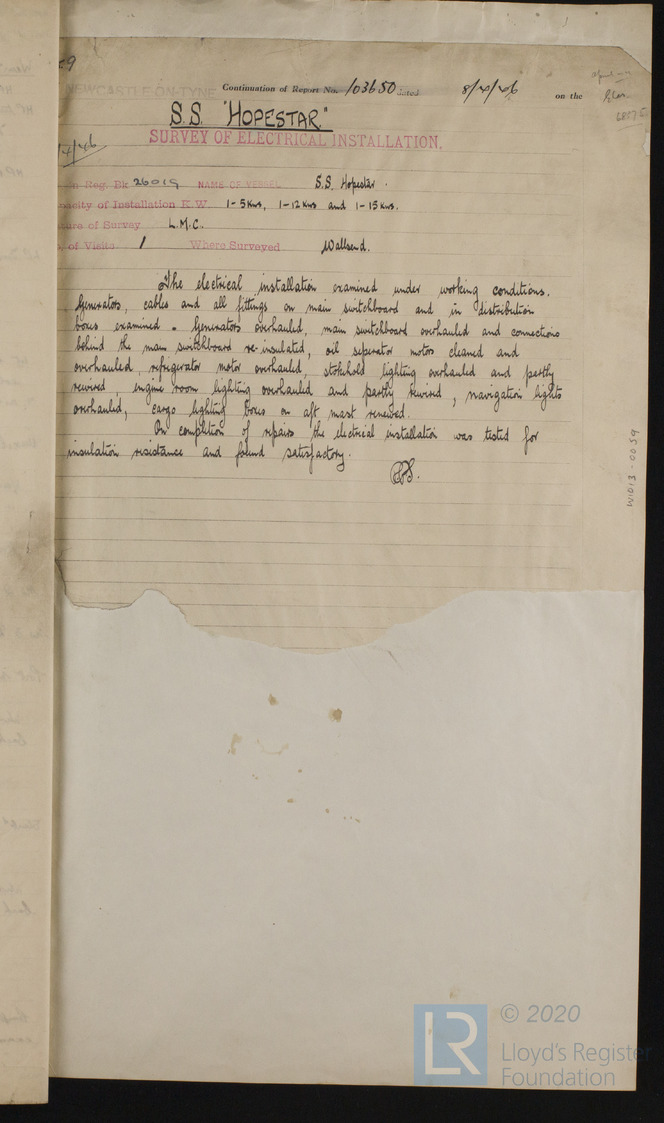 NEWCASTLE-ON-TYNE
Continuation of Report No. 103650 dated 8/4/46 on the
S.S. "HOPESTAR."
SURVEY OF ELECTRICAL INSTALLATION.
in Reg. Bk 26019 NAME OF VESSEL S.S. Hopestar.
acity of Installation K.W. 1-5Kws, 1-12Kws and 1-15Kws.
ture of Survey L.M.C.
of Visits 1 Where Surveyed Wallsend.
The electrical installation examined under working conditions.
Generators, cables and all fittings on main switchboard and in distribution
boxes examined. Generators overhauled, main switchboard overhauled and connections
behind the main switchboard re-insulated, oil seperator motors cleaned and
overhauled, refrigerator motor overhauled, stokehold lighting overhauled and partly
rewired, engine room lighting overhauled and partly rewired, navigation lights
overhauled, cargo lighting boxes on aft mast renewed.
On completion of repairs the electrical installation was tested for
insulation resistance and found satisfactory.
W1013-0059
LR
© 2020
Lloyd's Register
Foundation